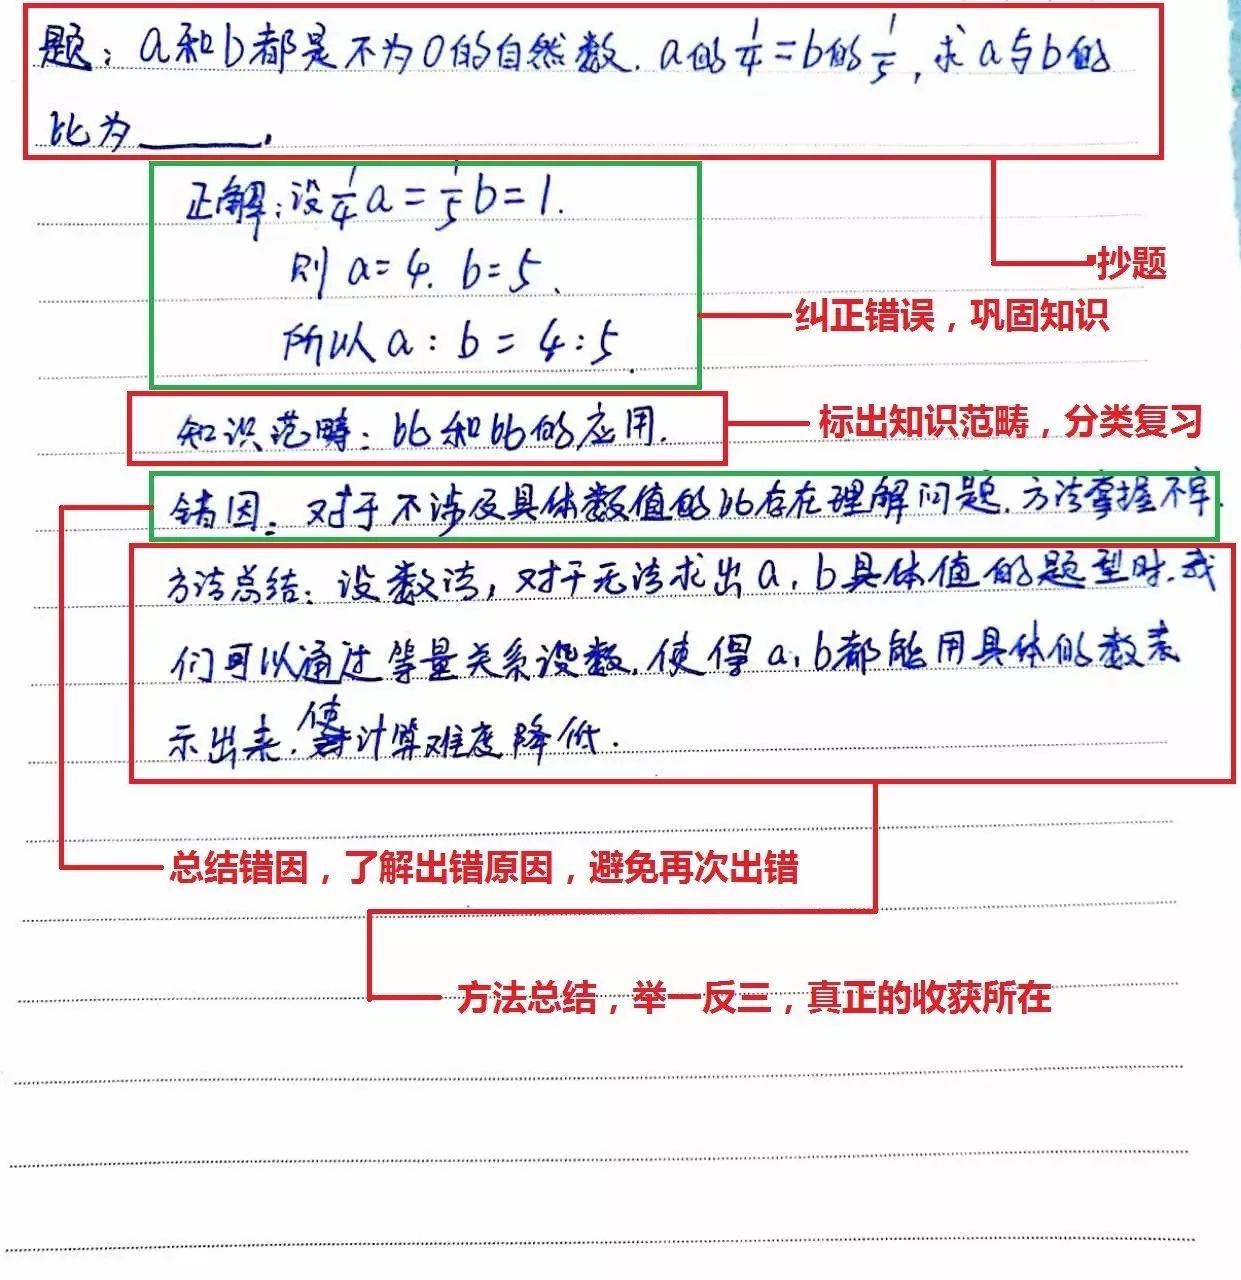 题：a和b都是不为0的自然数.a的1/4=b的1/5,求a与b的
比为______.
正解:设1/4a=1/5b=1.
则a=4.b=5、
抄题
纠正错误，巩固知识
所以a:b=4:5.
标出知识范畴，分类复习
知识范畴：比和比的应用.
错因：对于不涉及具体数值的比存在理解问题.方法掌握不牢.
方法总结：设数法，对于无法求出a,b具体值的题型时.我
们可以通过等量关系设数.使得a,b都能用具体的数表
示出来.使计算难度降低.
总结错因，了解出错原因，避免再次出错
方法总结，举一反三，真正的收获所在